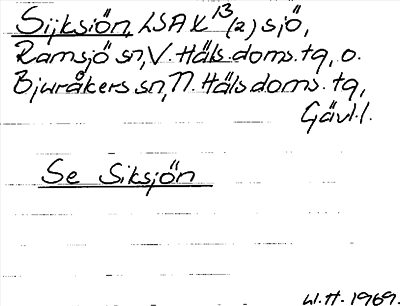 Sijksiön, LSA X 13 (2) sjö,
Ramsjö sn, V. Häls. doms. tg, o.
Bjuråkers sn, N. Häls doms. tg,
Gävl.l.
Se Siksjön
W.H. 1969.